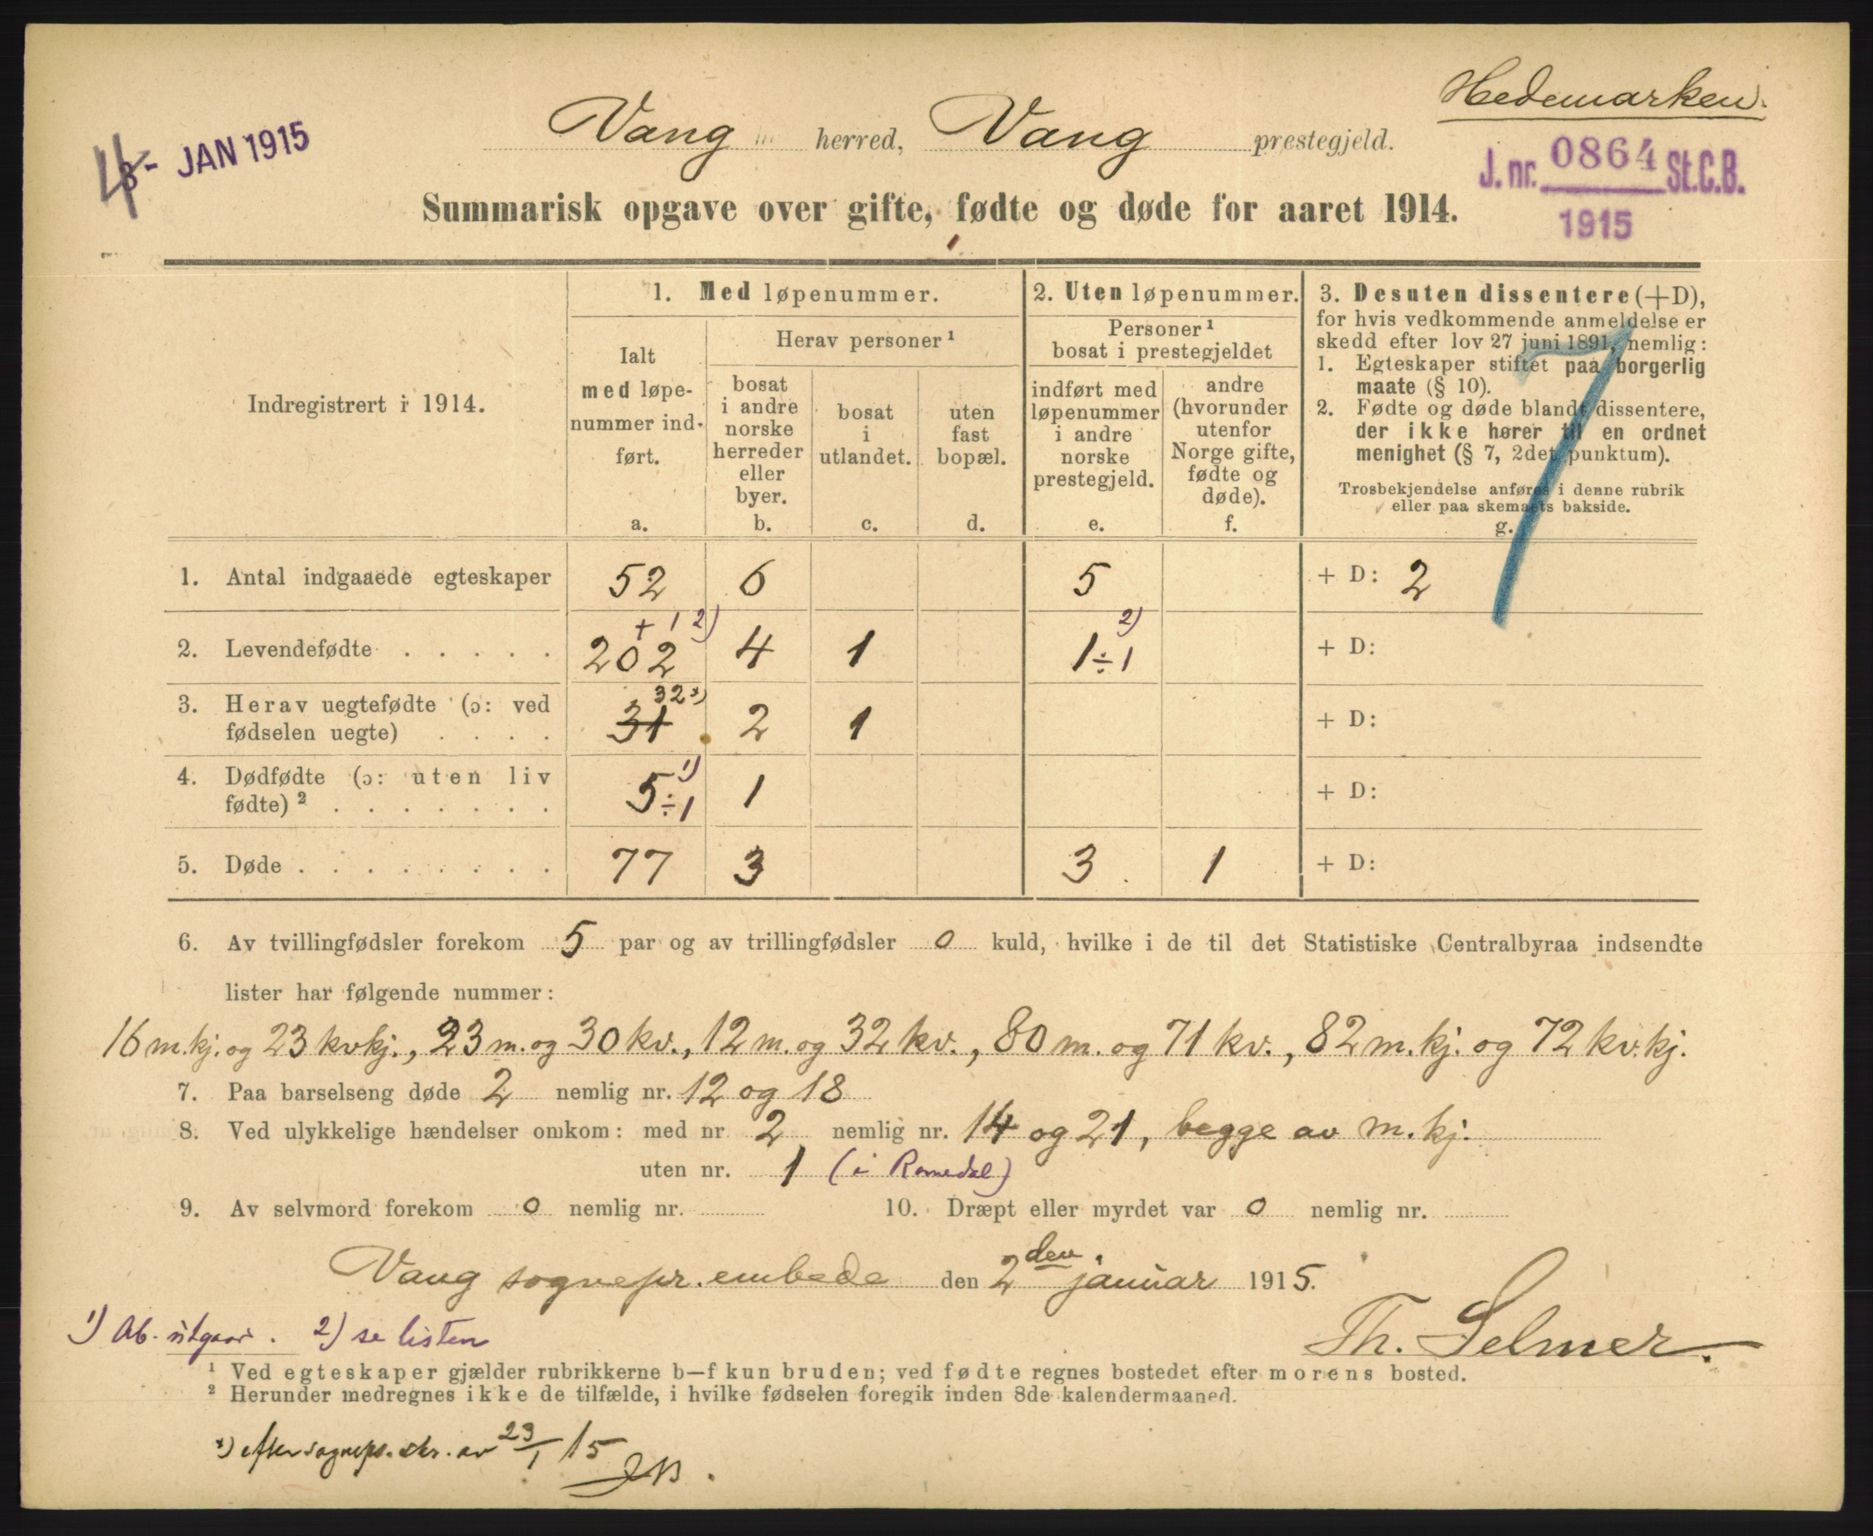 Hedemarken.
4 8- JAN 1915
Vang herred, Vang prestegjeld.
J. nr. 0864 St.C.B.
1915
Summarisk opgave over gifte, fødte og døde for aaret 1914.
7
Indregistrert i 1914.
1. Med løpenummer.
Ialt
med løpe-
nummer ind-
ført.
a.
Herav personer ¹
bosat
i andre
norske
herreder
eller
byer.
b.
bosat
i
utlandet.
c.
uten
fast
bopæl.
d.
2. Uten løpenummer.
Personer ¹
bosat i prestegjeldet
indført med
løpenummer
i andre
norske
prestegjeld.
e.
andre
(hvorunder
utenfor
Norge gifte,
fødte og
døde).
f.
3. Desuten dissentere (+D),
for hvis vedkommende anmeldelse er
skedd efter lov 27 juni 1891, nemlig:
1. Egteskaper stiftet paa borgerlig
maate (§ 10).
2. Fødte og døde blandt dissentere,
der ikke hører til en ordnet
menighet (§ 7, 2det punktum).
Trosbekjendelse anføres i denne rubrik
eller paa skemaets bakside.
g.
1. Antal indgaaede egteskaper 52 6 5 + D: 2
+ 1 2) 2)
2. Levendefødte . . . . . 202 4 1 1÷1 + D:
32 ³)
3. Herav uegtefødte (ɔ: ved
fødselen uegte) . . . . 31 2 1 + D:
4. Dødfødte (ɔ: uten liv
fødte) ² . . . . . . . 5÷1 ¹) 1 + D:
5. Døde . . . . . . . . 77 3 3 1 + D:
6. Av tvillingfødsler forekom 5 par og av trillingfødsler 0 kuld, hvilke i de til det Statistiske Centralbyraa indsendte
lister har følgende nummer:
16 m.kj. og 23 kvkj., 23 m. og 30 kv., 12 m. og 32 kv., 80 m. og 71 kv., 82 m.kj. og 72 kv.kj.
7. Paa barselseng døde 2 nemlig nr. 12 og 18
8. Ved ulykkelige hændelser omkom: med nr 2 nemlig nr. 14 og 21, begge av m.kj.
uten nr. 1 (i Romedal)
9. Av selvmord forekom 0 nemlig nr.
10. Dræpt eller myrdet var 0 nemlig nr.
Vang sognepr.embede den 2den januar 1915.
Th. Selmer.
1) Ab. utgaar. 2) se listen
¹ Ved egteskaper gjælder rubrikkerne b—f kun bruden; ved fødte regnes bostedet efter morens bosted.
² Herunder medregnes ikke de tilfælde, i hvilke fødselen foregik inden 8de kalendermaaned.
³) efter sognepr. skr. av 23/1 15